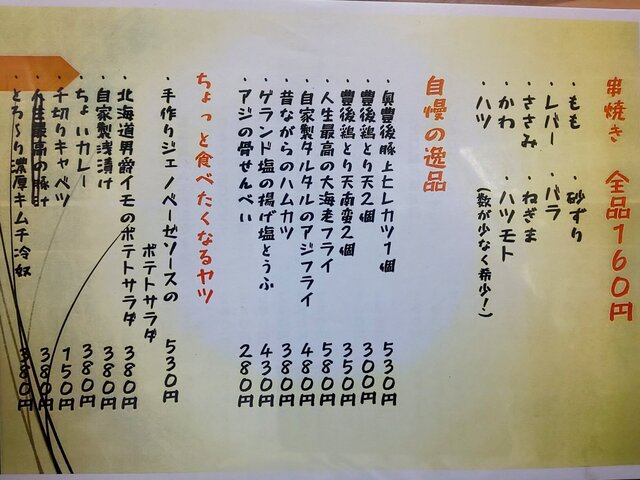 串焼き 全品160円
・もも 砂ずり
・レバー バラ
・ささみ ねぎま
・かわ ハツモト
・ハツ (数が少なく希少!)
自慢の逸品
・奥豊後豚上ヒレカツ1個 530円
・豊後鶏とり天2個 300円
・豊後鶏とり天南蛮2個 350円
・人生最高の大海老フライ 580円
・自家製タルタルのアジフライ 480円
・昔ながらのハムカツ 380円
・ゲランド塩の揚げ塩とうふ 430円
・アジの骨せんべい 280円
ちょっと食べたくなるヤツ
・手作りジェノベーゼソースの
ポテトサラダ 530円
・北海道男爵イモのポテトサラダ 380円
・自家製浅漬け 380円
・ちょいカレー 380円
・千切りキャベツ 150円
・人生最高の豚汁 380円
・とろ〜り濃厚キムチ冷奴 380円